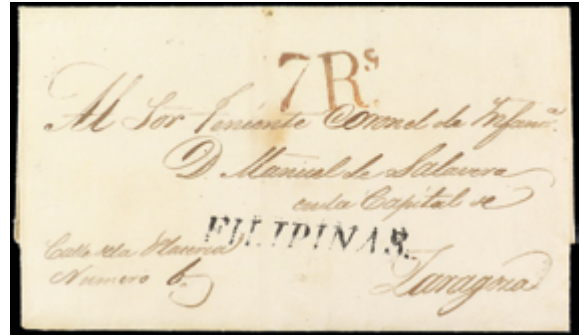 7 Rs.
Al Sor Teniente Coronel de Infanª.
D. Manuel de Talavera
en la Capital de
FILIPINAS.
Calle de la Plateria
Zaragoza
Numero 6.